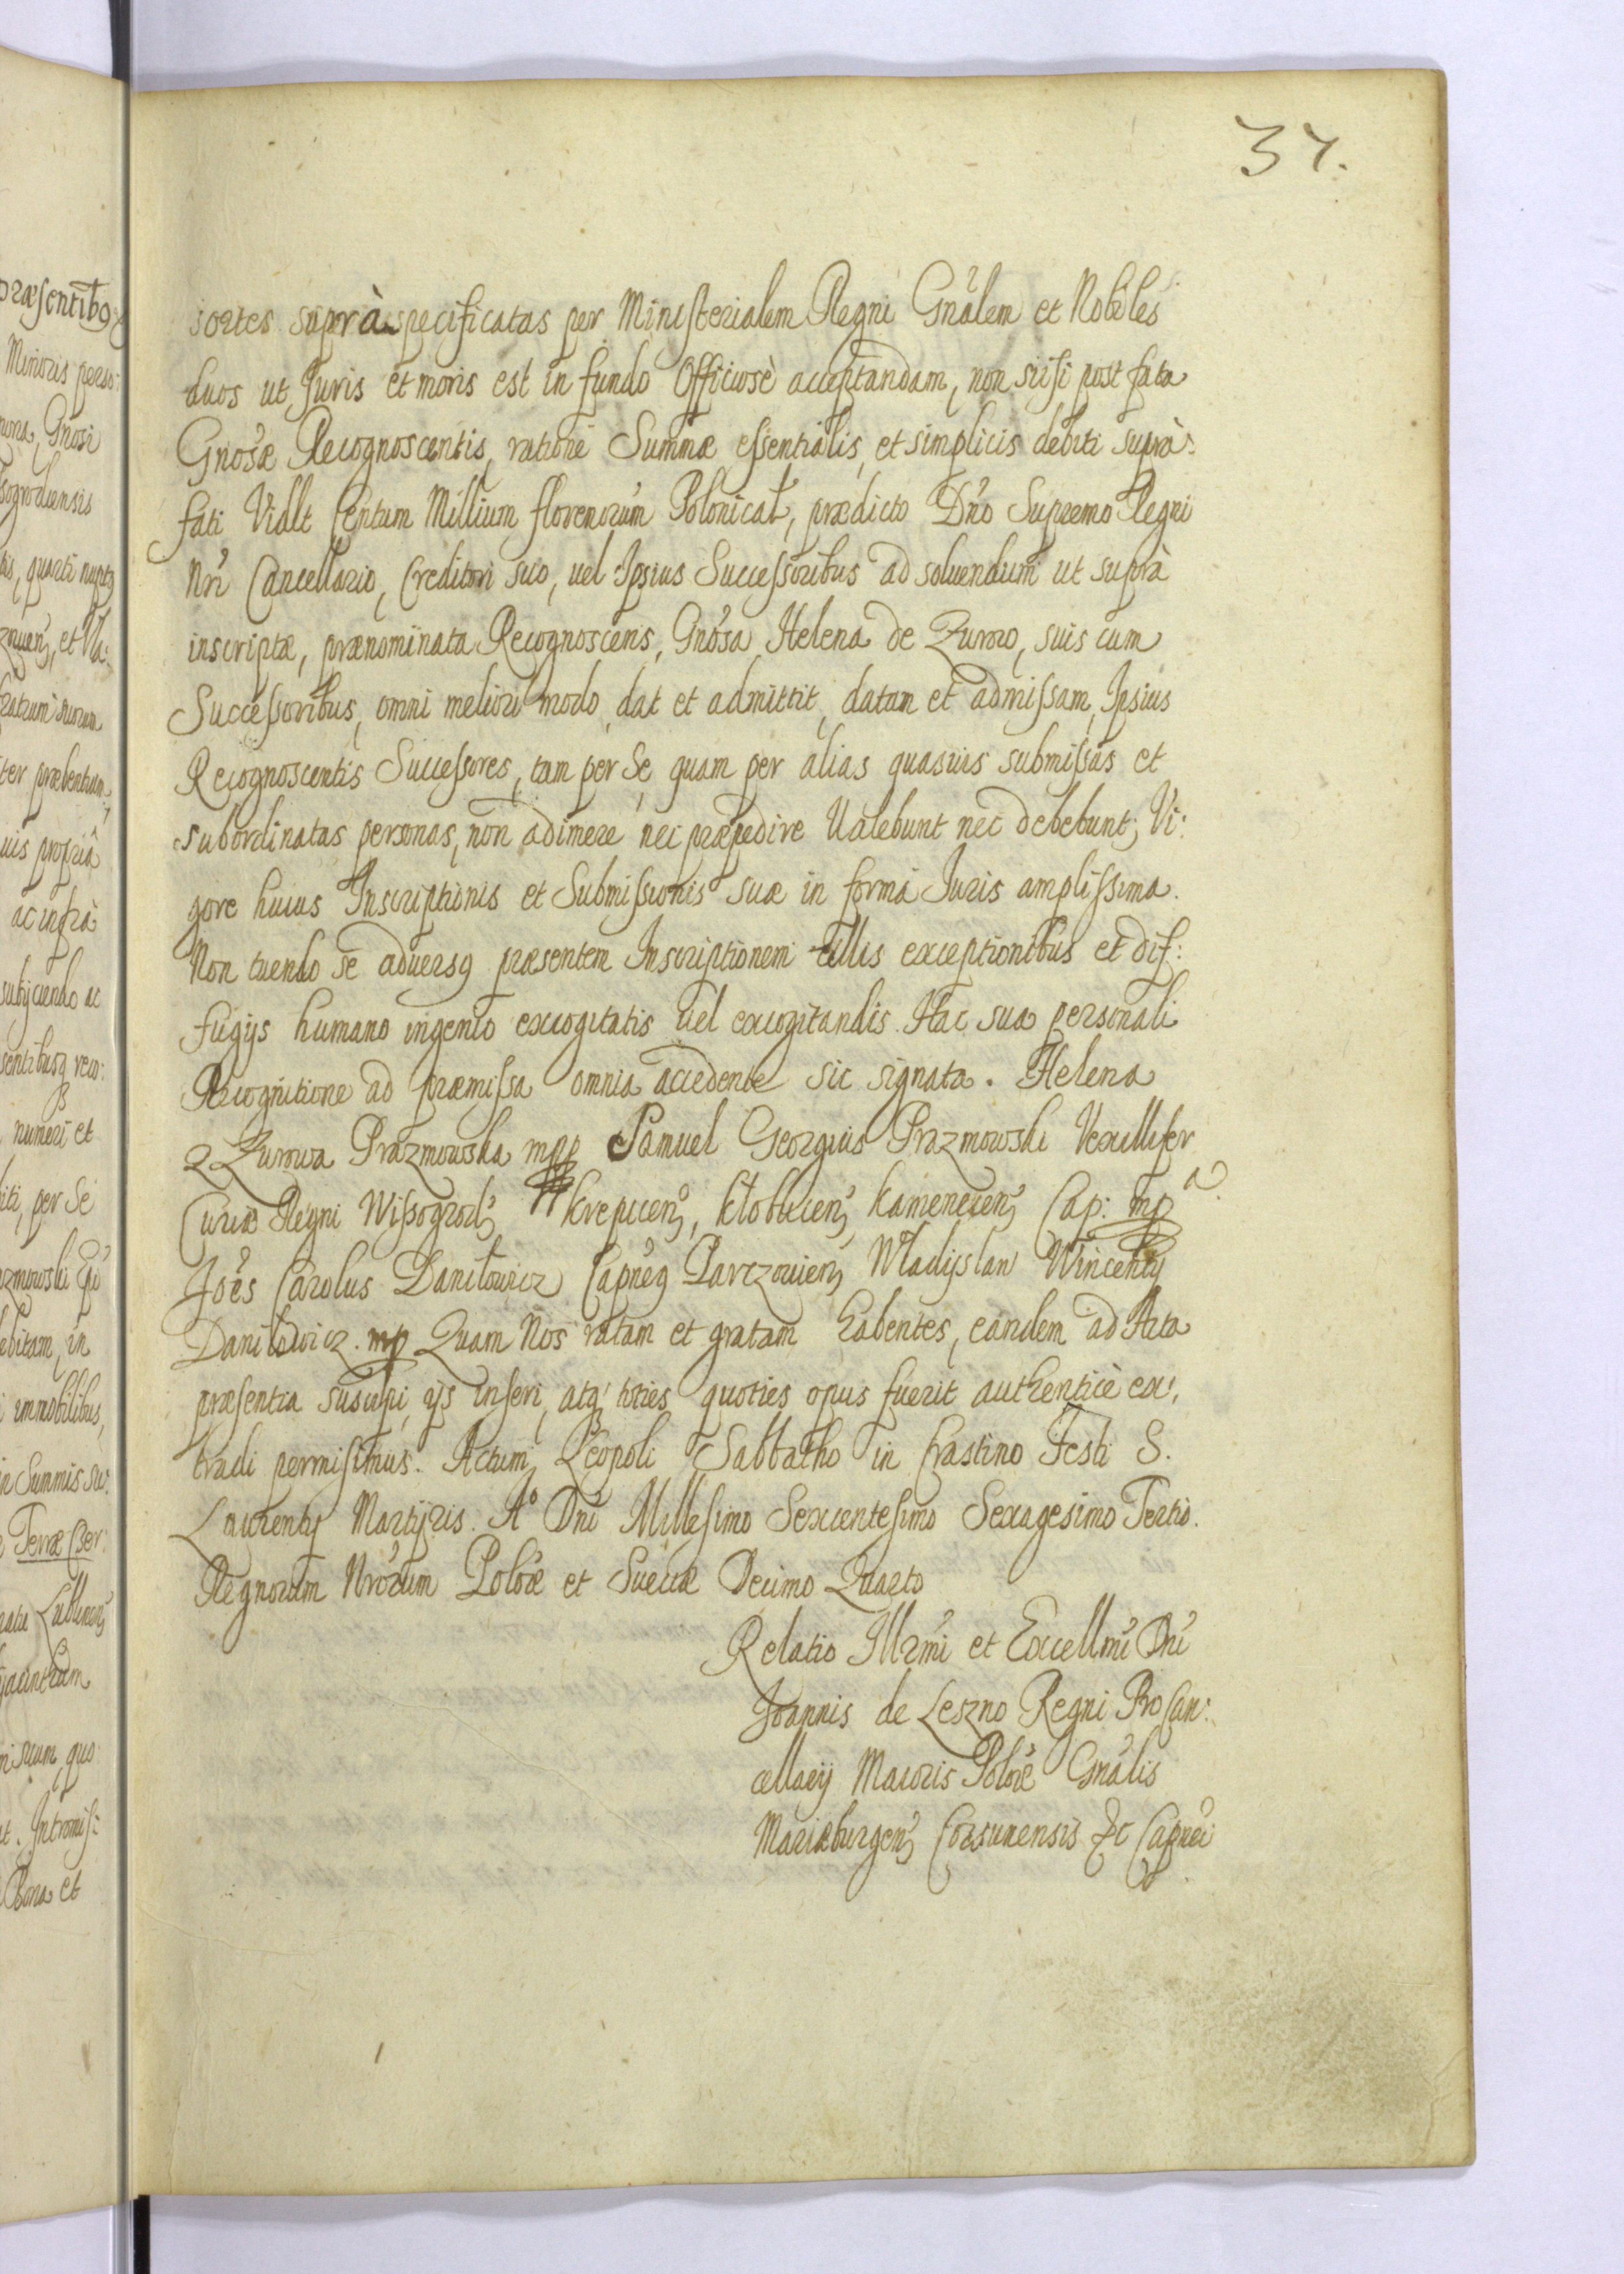 37.
sortes supràspecificatas per Ministerialem Regni Gnãlem et Nobiles
duos ut Juris et moris est in fundo Officiosè acceptandam, non nisi post fata
Gnosæ Recognoscentis, ratione Summæ essentialis, et simplicis debiti suprà:
fati Vidlt Centum Millium florenorum Polonicał, prædicto Dño Supremo Regni
Nri Cancellario, Creditori suo, uel Ipsius Successoribus ad soluendum ut suprà
inscriptæ, prænominata Recognoscens, Gnosa Helena de Zurow, suis cum
Successoribus, omni meliori modo, dat et admittit, datam et admissam, Ipsius
Recognoscentis Successores, tam per Se, quam per alias quasuis submissas et
subordinatas personas, non adimere nec præpedire Ualebunt nec debebunt; Vi:
gore huius Inscriptionis et Submissionis suæ in formâ Juris amplissima.
Non tuendo se aduersq præsentem Inscriptionem ullis exceptionibus et dif:
fugijs humano ingenio excogitatis uel excogitandis. Hac sua personali
Recognitione ad præmissa omnia accedente sic signata. Helena
z Zurowa Prazmowska mpp Samuel Georgius Prazmowski Vexillifer
Curiæ Regni Wissogrod, krepicen, kłobucen, kamenecen, Cap: mp
Joẽs Carolus Daniłowicz Capneq Parczowien, Wladyslaw Wincenty
Daniłowicz. mp Quam Nos ratam et gratam habentes, eandem ad Acta
præsentia suscipi, ijs inseri, atq toties quoties opus fuerit authenticè ex:
tradi permisimus. Actum Leopoli Sabbatho in Crastino Festi S.
Laurentij Martyris. Aº Dni Millesimo Sexcentesimo Sexagesimo Tertio.
Regnorum Nrorum Poloæ et Sueciæ Decimo Quarto
Relatio Illrmi et Excellmi Dni
Joannis de Leszno Regni ProCan:
cellarij Maioris Poloæ Gnalis
Mariæburgen, Corsunensis &c Capnei